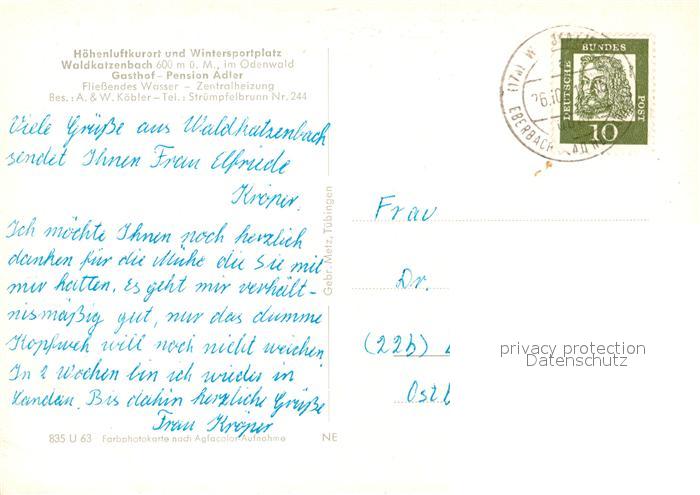 Höhenluftkurort und Wintersportplatz
Waldkatzenbach 600 m ü. M., im Odenwald
Gasthof - Pension Adler
Fließendes Wasser – Zentralheizung
Bes.: A. & W. Köbler – Tel.: Strümpfelbrunn Nr. 244
Viele Grüße aus Waldkatzenbach
sendet Ihnen Frau Elfriede
Kröper.
Ich möchte Ihnen noch herzlich
danken für die Mühe die Sie mit
mir hatten. Es geht mir verhält-
nismäßig gut, nur das dumme
Kopfweh will noch nicht weichen.
In 2 Wochen bin ich wieder in
Landau. Bis dahin herzliche Grüße
Frau Kröper
835 U 63 Farbphotokarte nach Agfacolor-Aufnahme NE
Gebr. Metz, Tübingen
DEUTSCHE
BUNDES
POST
10
(17a)
EBERBACH
Frau
Dr.
(22b)
privacy protection
Datenschutz